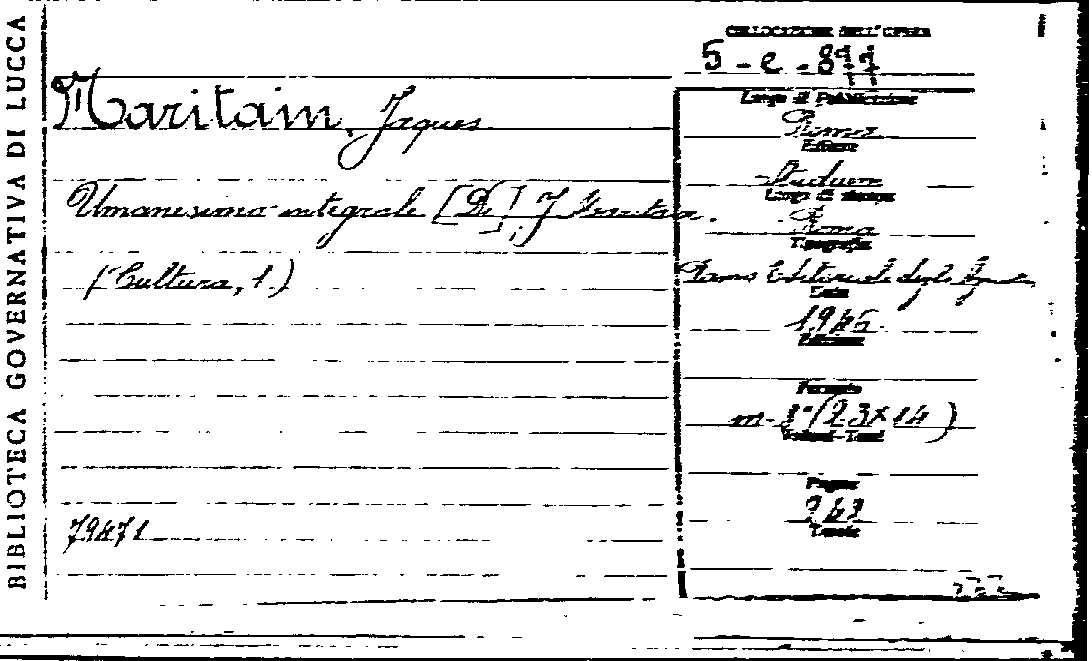 BIBLIOTECA GOVERNATIVA DI LUCCA
COLLOCAZIONE DELL'OPERA
5-e-877
Maritain, Jaques
Umanesimo integrale [Di] J. Maritain.
(Cultura, 1.)
79471
Luogo di Pubblicazione
Roma
Editore
Studium
Luogo di stampa
Roma
Tipografia
Editoriale degli
Data
1946
Edizione
Formato
in-8°(23×14)
Volumi-Tomi
Pagine
243
Tavole